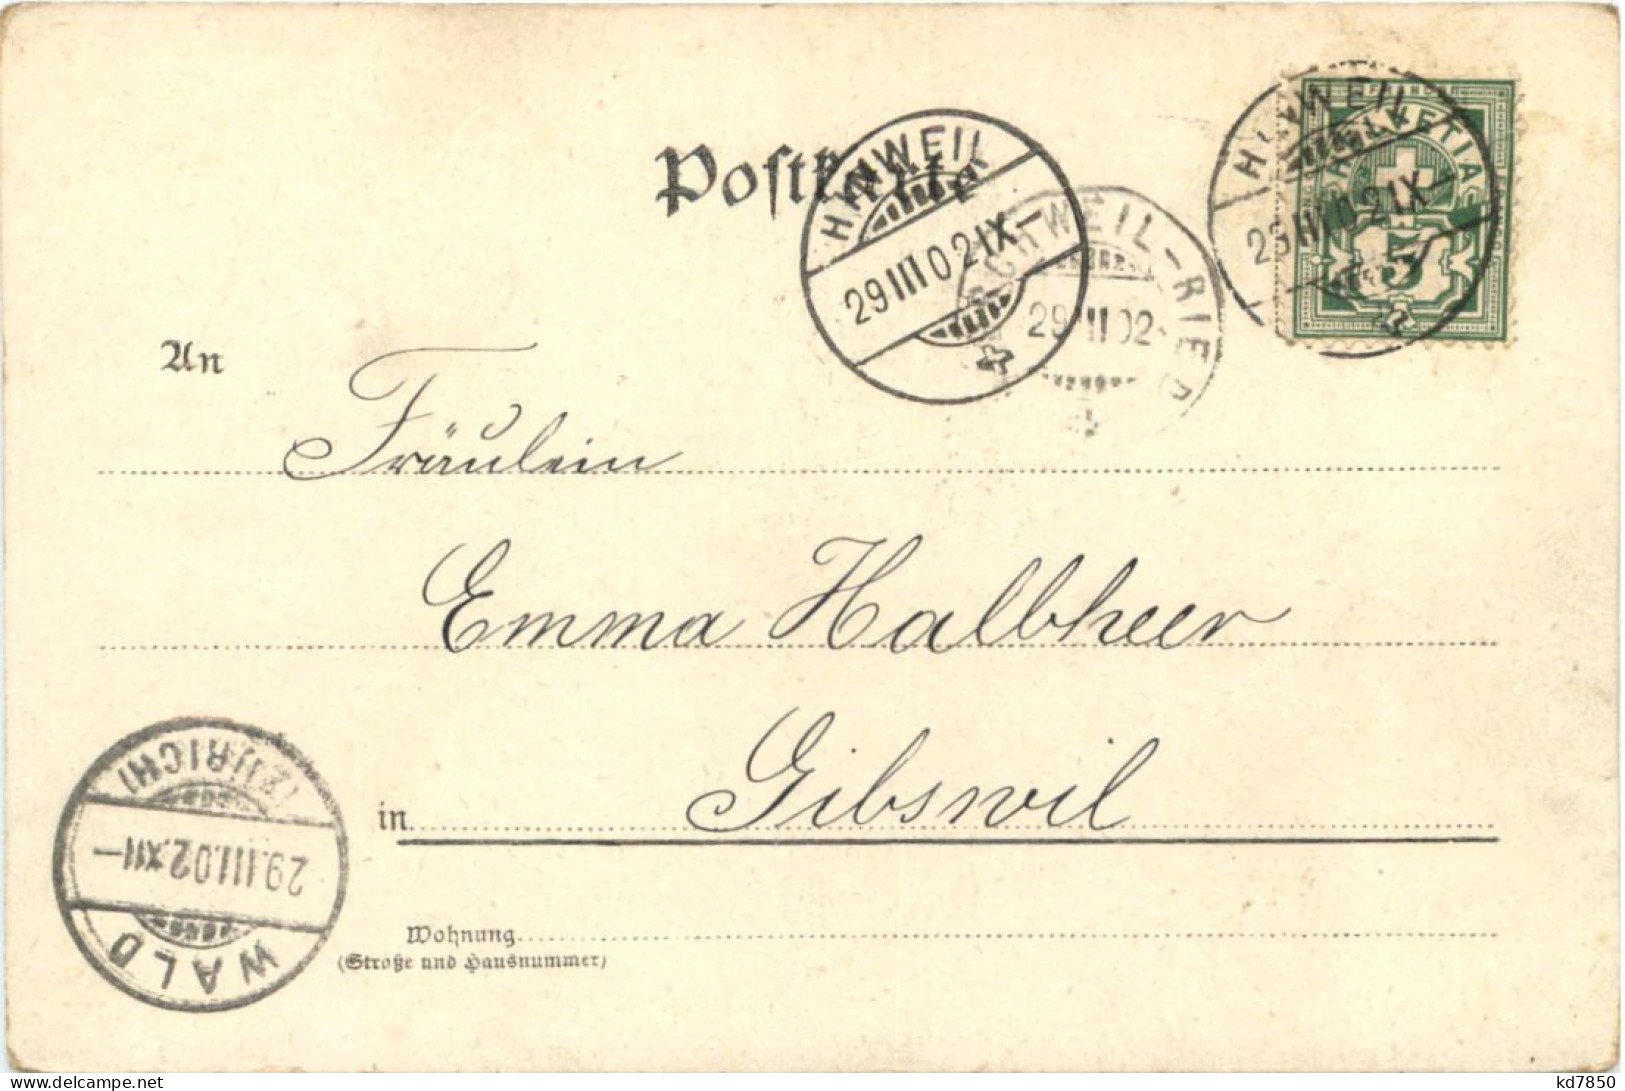 Postkarte
HINWEIL
29 III 02 IX-
HINWEIL
29 III 02 IX-
WEIL-RIED
29 III 02-
FRANCO
HELVETIA
5
An
Fräulein
Emma Halbheer
in Gibswil
WALD
29.III.02.XII-
(ZÜRICH)
Wohnung
(Straße und Hausnummer)
kd7850